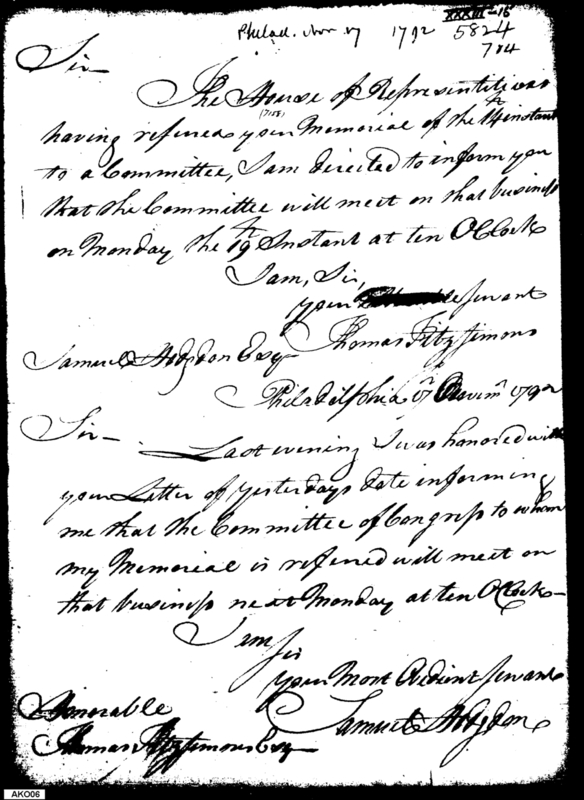 XXXIII-16
Philad. Nov 17 1792 5824
704
Sir
The House of Representitives
(7158)
having refered your Memorial of the 14th instant
to a Committee, I am directed to inform you
that the Committee will meet on that business
on Monday the 19th Instant at ten OClock
I am, Sir,
your servant
Thomas Fitzsimons
Samuel Hodgdon Esq
Philadelphia 17 1792
Sir
Last evening I was honored with
your Letter of yesterdays date informing
me that the Committee of Congress to whom
my Memorial is refered will meet on
that business next Monday at ten OClock
I am
Sir
your Most Obedient servant
Samuel Hodgdon
Honorable
Thomas Fitzsimons Esq
AKO06